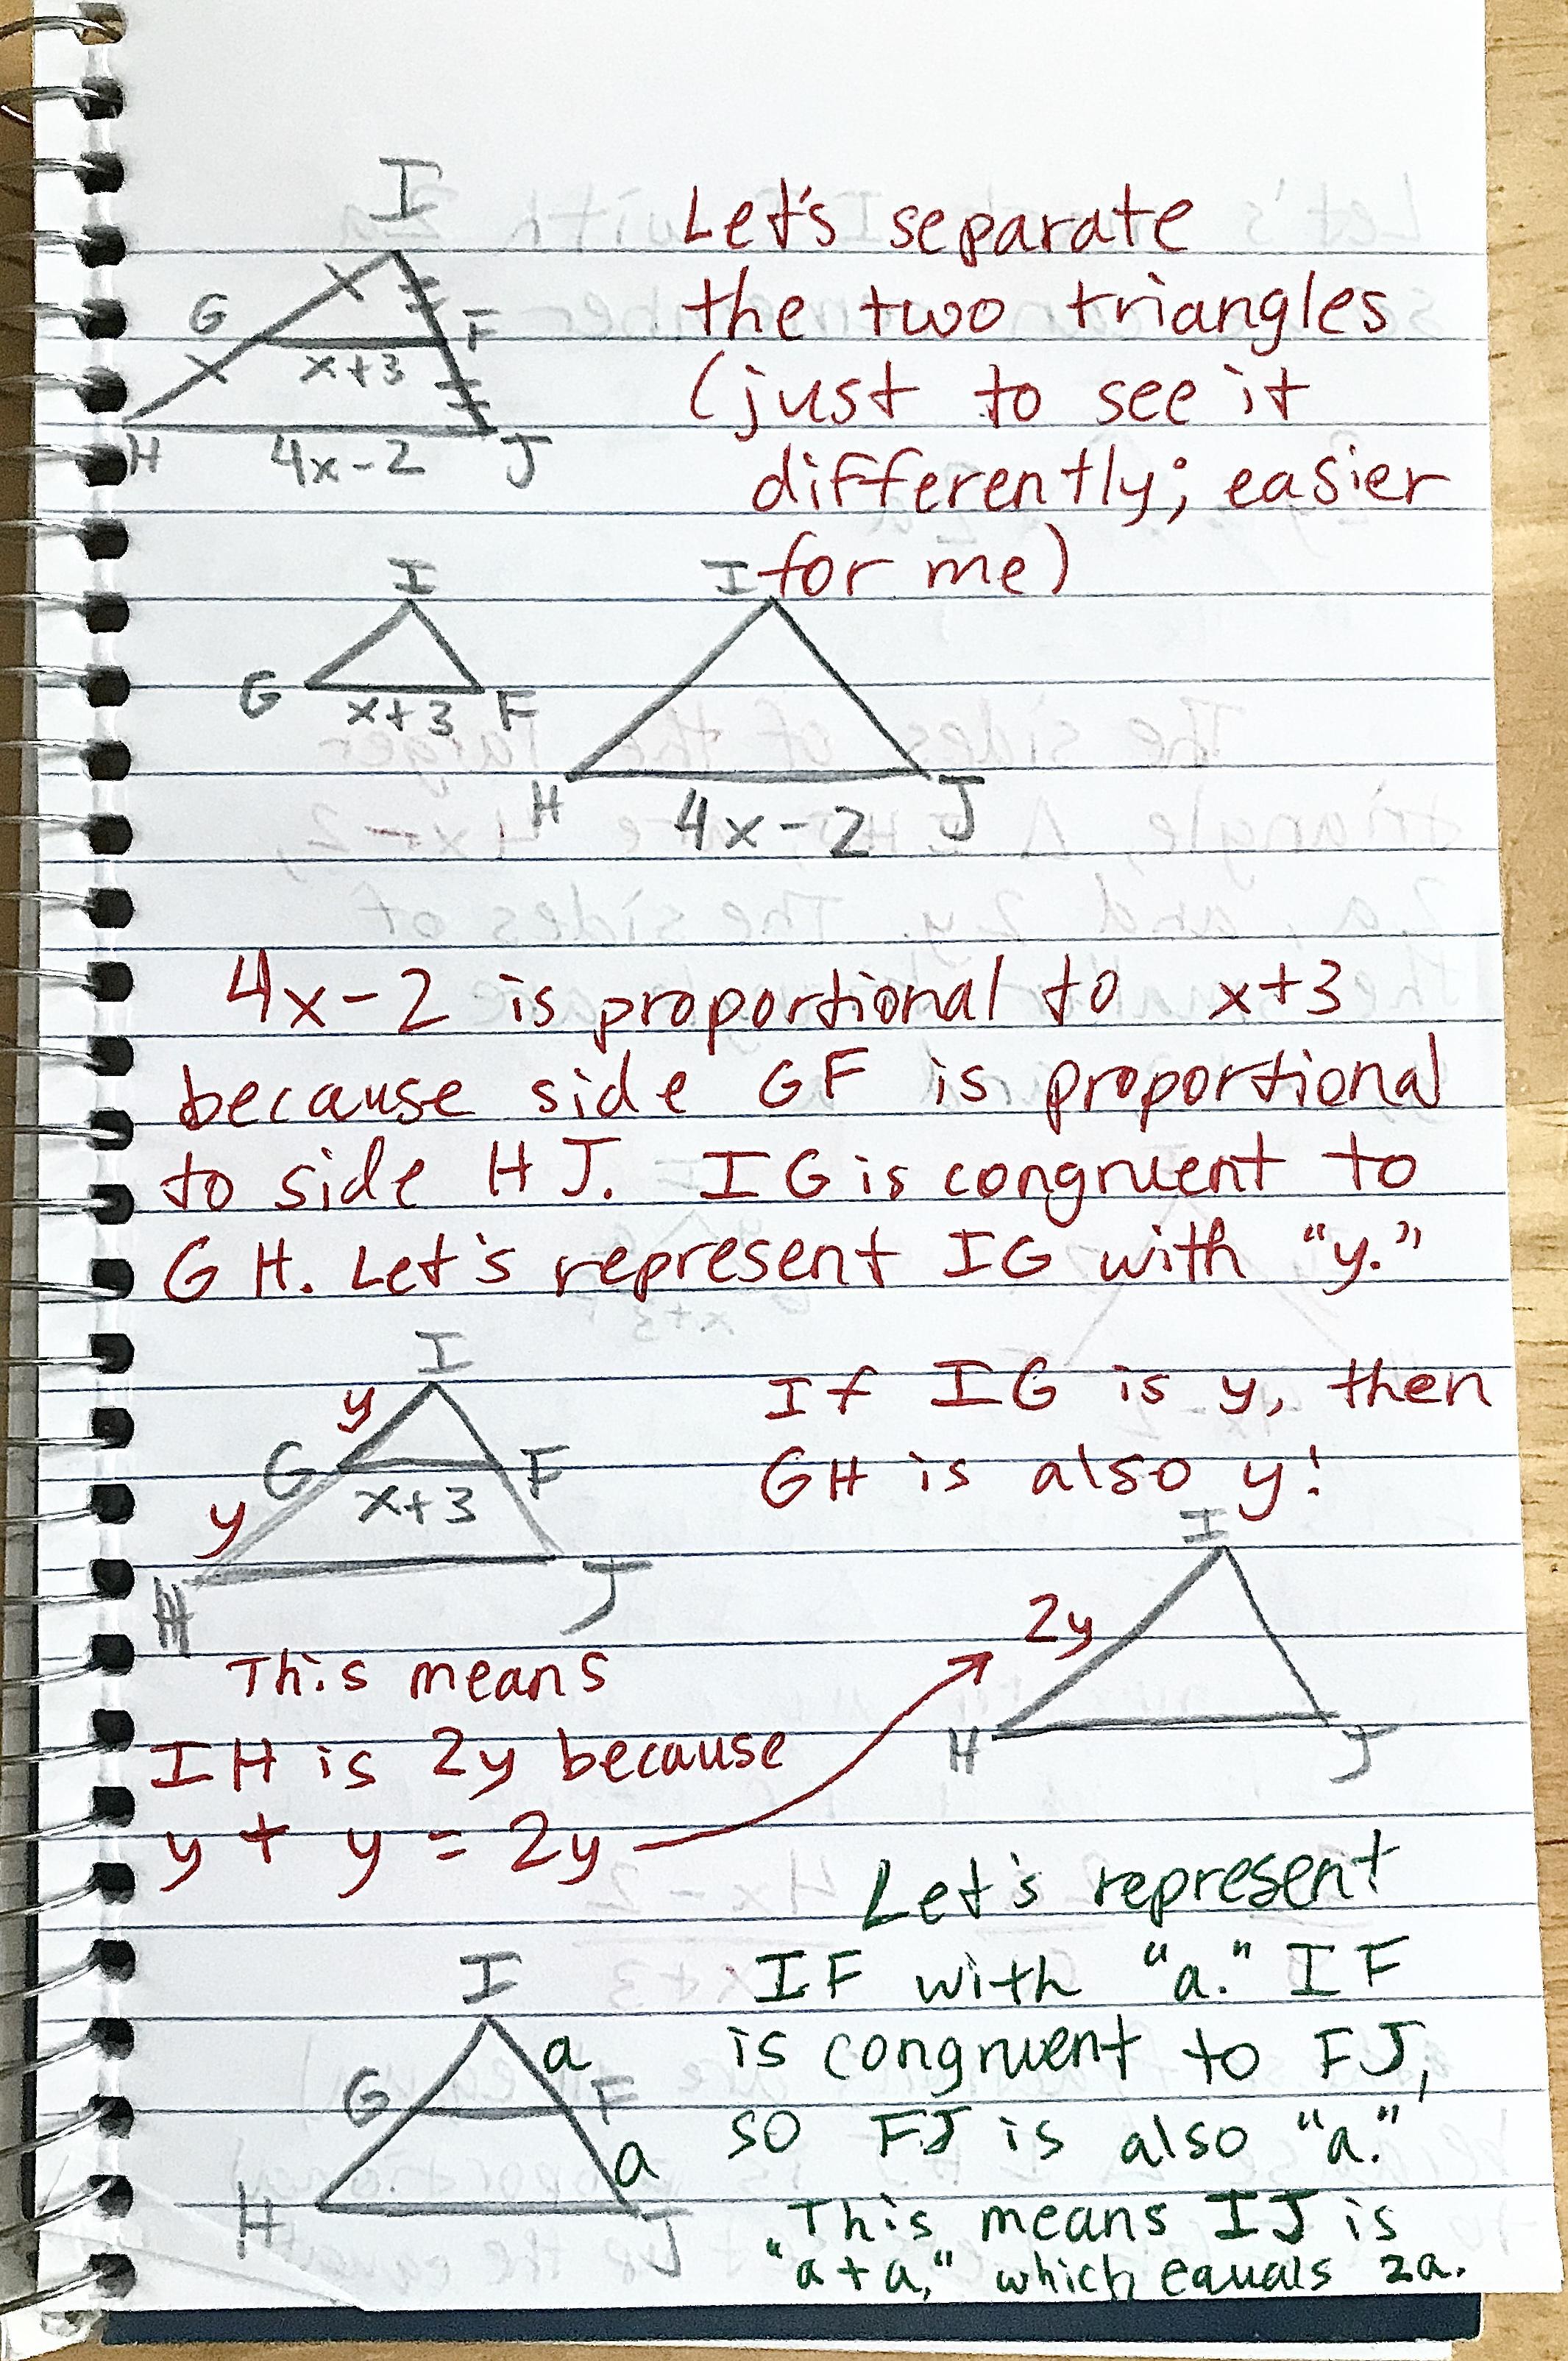 I
G
F
x+3
H
4x-2
J
Let's separate
the two triangles
(just to see it
differently; easier
for me)
I
G
x+3
F
I
H
4x-2
J
4x-2 is proportional to x+3
because side GF is proportional
to side HJ. IG is congruent to
GH. Let's represent IG with "y."
I
y
G
F
x+3
y
H
J
If IG is y, then
GH is also y!
This means
IH is 2y because
y + y = 2y
I
2y
H
J
Let's represent
IF with "a." IF
is congruent to FJ,
so FJ is also "a."
This means IJ is
"a+a," which equals 2a.
I
a
G
F
a
H
J